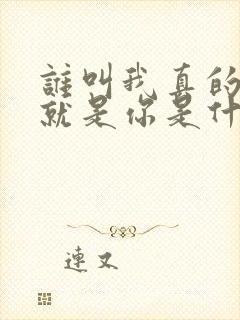 誰叫我真的
就是你是什
連又